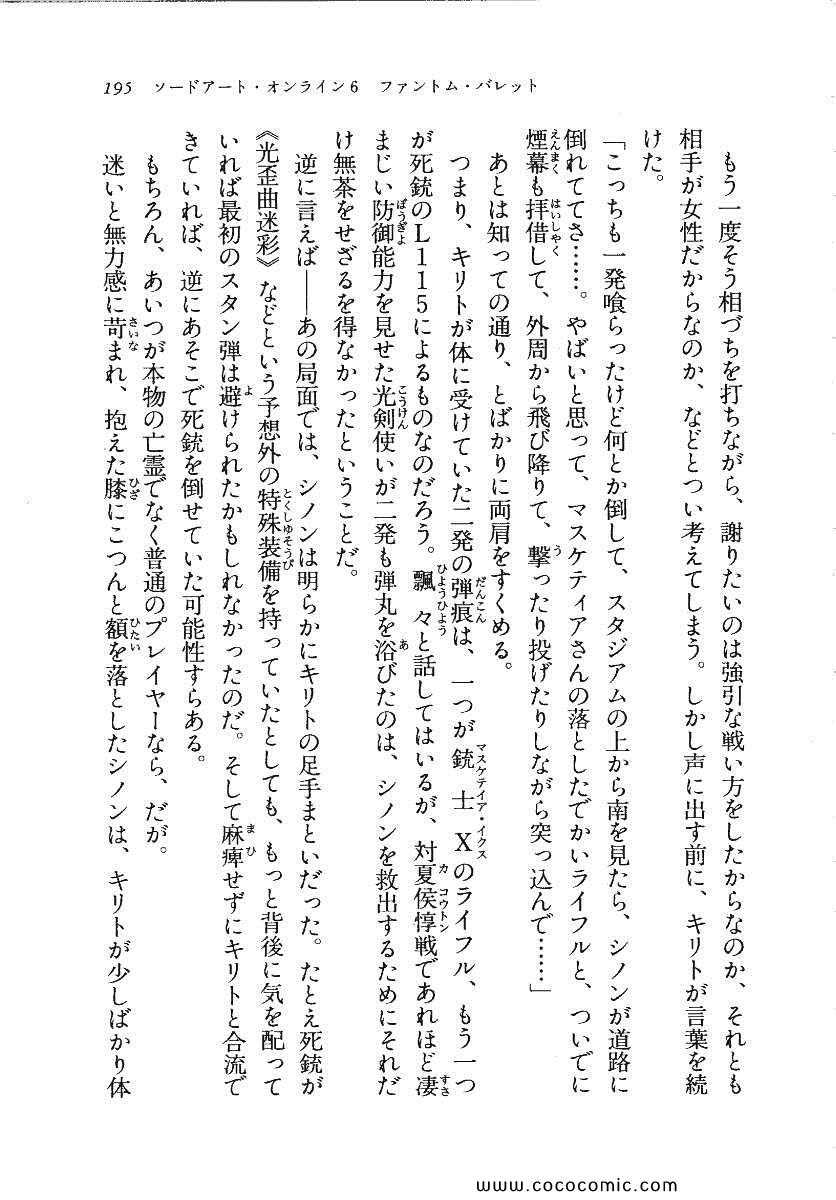 195　ソードアート・オンライン6　ファントム・バレット
　もう一度そう相づちを打ちながら、謝りたいのは強引な戦い方をしたからなのか、それとも
相手が女性だからなのか、などとつい考えてしまう。しかし声に出す前に、キリトが言葉を続
けた。
「こっちも一発喰らったけど何とか倒して、スタジアムの上から南を見たら、シノンが道路に
倒れててさ……。やばいと思って、マスケティアさんの落としたでかいライフルと、ついでに
煙幕も拝借して、外周から飛び降りて、撃ったり投げたりしながら突っ込んで……」
　あとは知っての通り、とばかりに両肩をすくめる。
　つまり、キリトが体に受けていた二発の弾痕は、一つが銃士Xのライフル、もう一つ
が死銃のL115によるものなのだろう。飄々と話してはいるが、対夏侯惇戦であれほど凄
まじい防御能力を見せた光剣使いが二発も弾丸を浴びたのは、シノンを救出するためにそれだ
け無茶をせざるを得なかったということだ。
　逆に言えば――あの局面では、シノンは明らかにキリトの足手まといだった。たとえ死銃が
《光歪曲迷彩》などという予想外の特殊装備を持っていたとしても、もっと背後に気を配って
いれば最初のスタン弾は避けられたかもしれなかったのだ。そして麻痺せずにキリトと合流で
きていれば、逆にあそこで死銃を倒せていた可能性すらある。
　もちろん、あいつが本物の亡霊でなく普通のプレイヤーなら、だが。
　迷いと無力感に苛まれ、抱えた膝にこつんと額を落としたシノンは、キリトが少しばかり体
www.cococomic.com